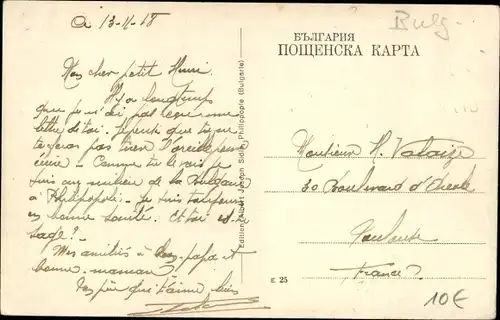 a 13-11-18
Mon cher petit Henri.
Il y a longtemps
que je n'ai pas reçu une
lettre de toi. Je pense que tu ne
te feras pas tirer l'oreille pour
écrire - Comme tu le vois je
suis au milieu de la Bulgarie
à Philippopoli. Je suis toujours
en bonne santé. Et toi es-tu
sage? -
Mes amitiés à bon-papa et
bonne-maman
Ton père qui t'aime bien
Edition Albert Joseph Sidi, Philippople (Bulgarie)
Bulg-
БЪЛГАРИЯ
ПОЩЕНСКА КАРТА
Monsieur H.
30 Boulevard d'
Toulouse
France
E 25
10€